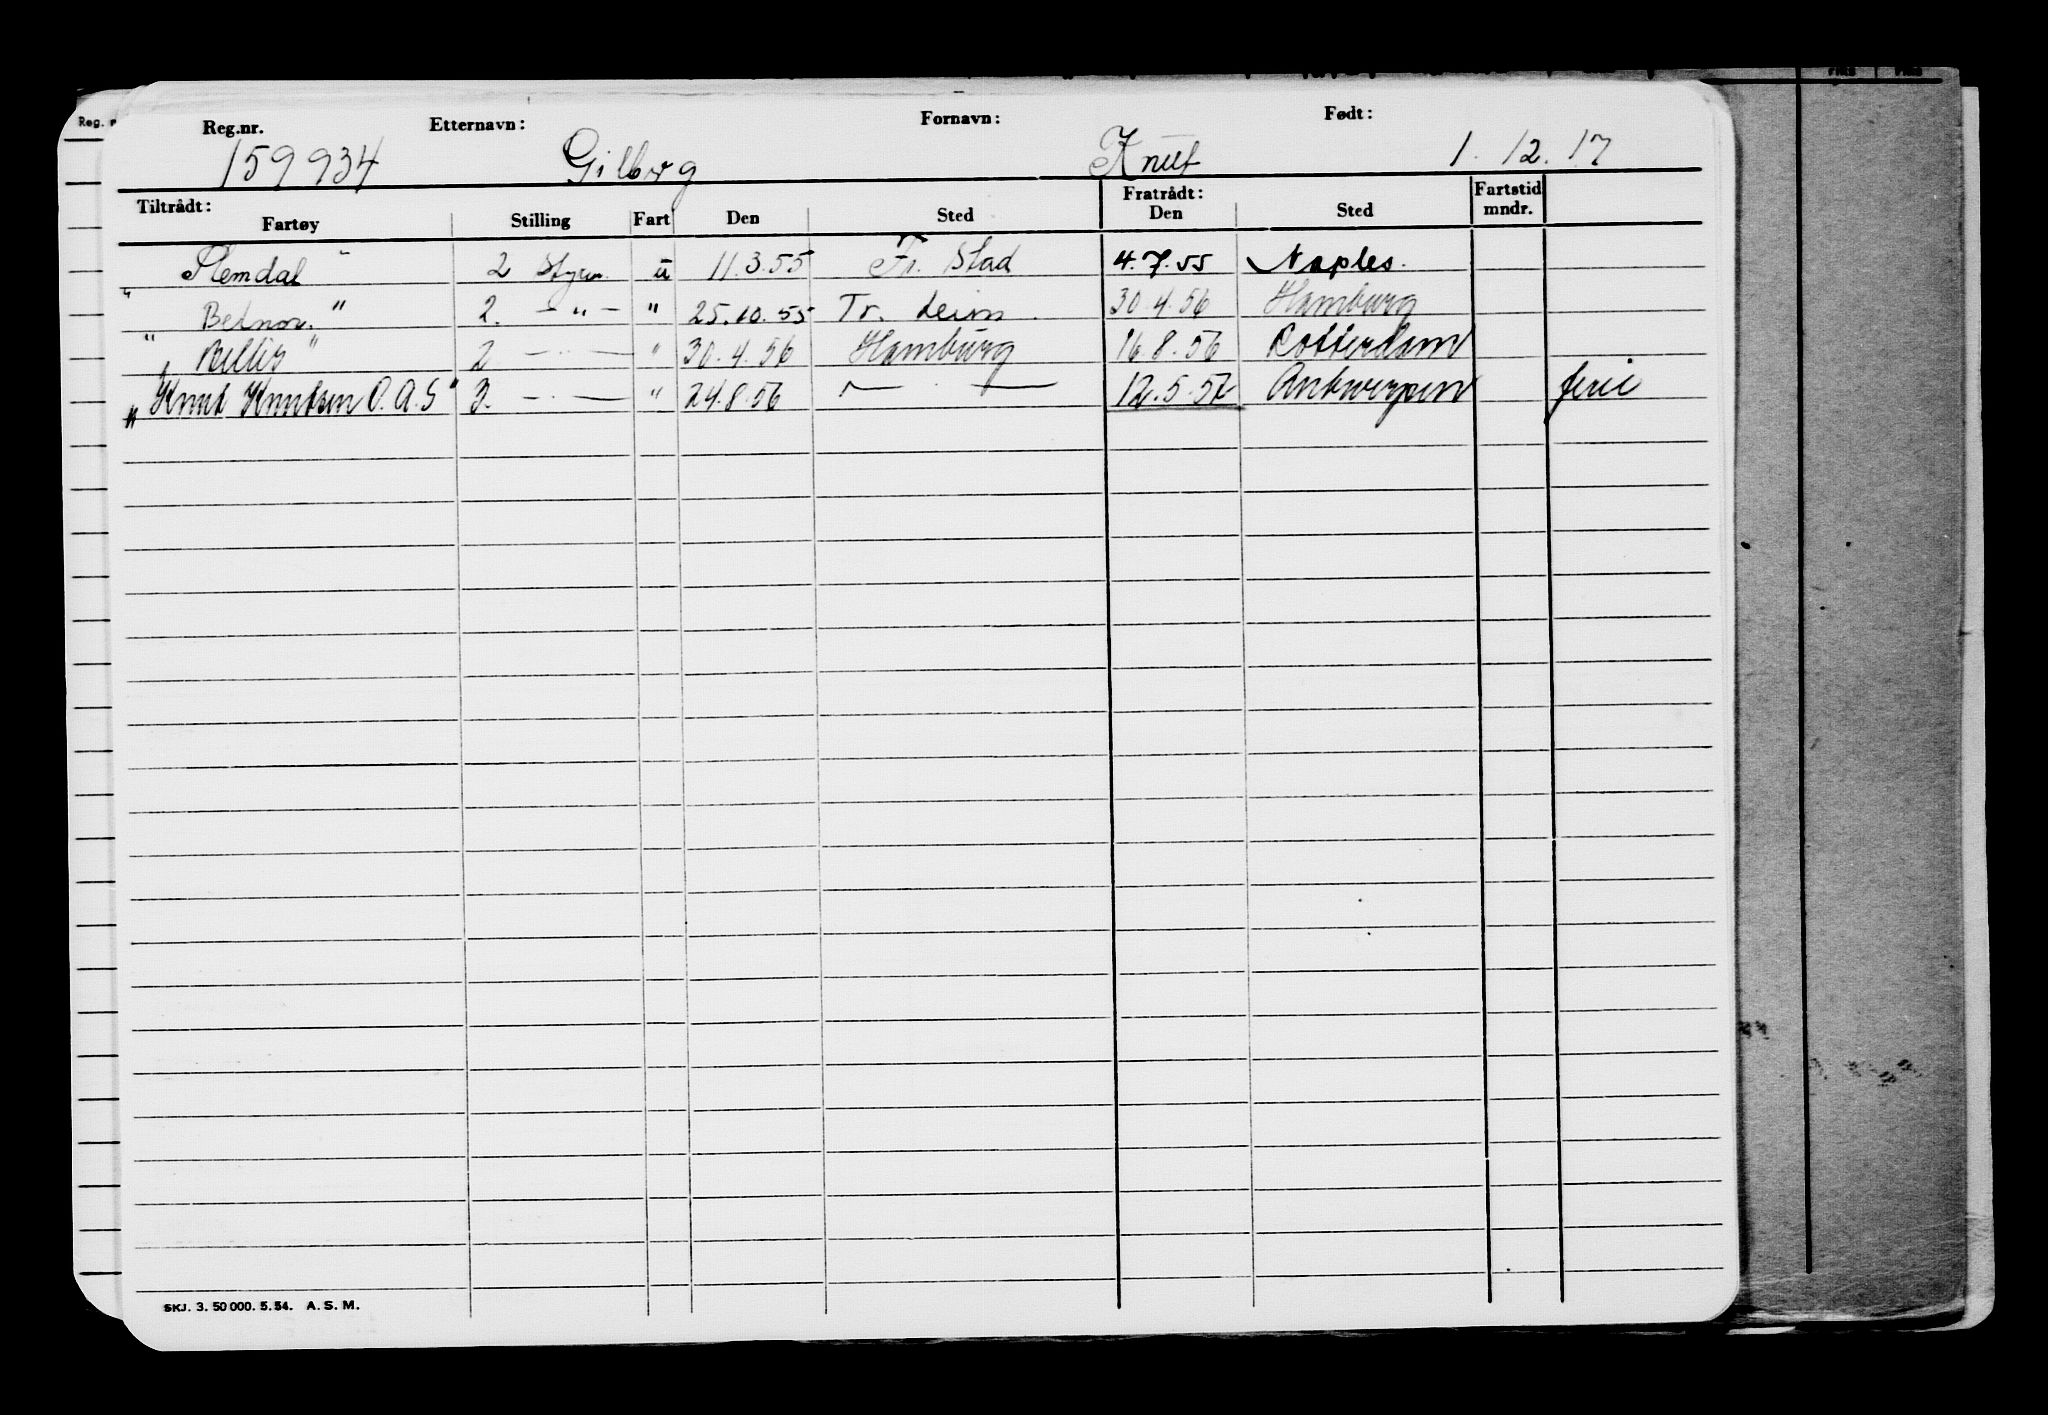 Reg.nr. Etternavn: Fornavn: Født:
159934 Gilbrg Knut 1. 12. 17
Tiltrådt: Fratrådt: Fartstid
Fartøy Stilling Fart Den Sted Den Sted mndr.
"Slemdal" 2 Styrm. u 11.3.55 Fr. Stad 4.7.55 Naples.
"Belnor." 2. - " - " 25.10.55 Tr. heim. 30.4.56 Hamburg
"Bellis" 2 - " - " 30.4.56 Hamburg 16.8.56 Rotterdam
"Knut Knutsen O.A.S" 3. - " - " 24.8.56 - " - 12.5.57 Antwerpen ferie
SKJ. 3. 50 000. 5. 54. A. S. M.
Reg.